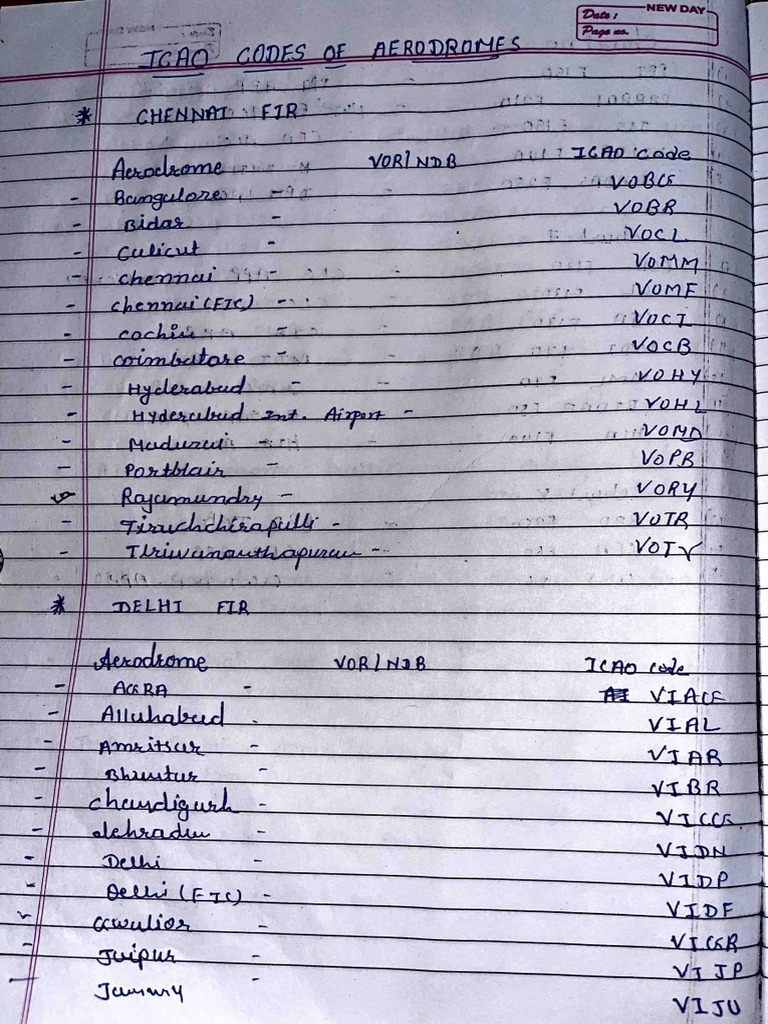 NEW DAY
Date :
Page no.
ICAO CODES OF AERODROMES
* CHENNAI FIR
Aerodrome VOR/NDB ICAO code
- Bangulore - VOBG
- Bidar - VOBR
- Culicut - VOCL
- chennai - VOMM
- chennai (FIC) - VOMF
- cochin - VOCI
- coimbatore - VOCB
- Hyderabud - VOHY
- Hyderabud Int. Airport - VOHL
- Maduzai - VOMD
- Portblair - VOPB
Rajamundry - VORY
- Tiruchchirapulli - VOTR
- Thriwunanthapuram - VOTV
* DELHI FIR
Aerodrome VOR/NDB ICAO code
- AGRA - VIAG
- Alluhabud - VIAL
- Amritsur - VIAR
- Bhuntur - VIBR
- chandigurh - VICG
- dehradun - VIDN
- Delhi - VIDP
- Delhi (FIC) - VIDF
Gwulior - VIGR
- Juipur - VIJP
- Jammu - VIJU